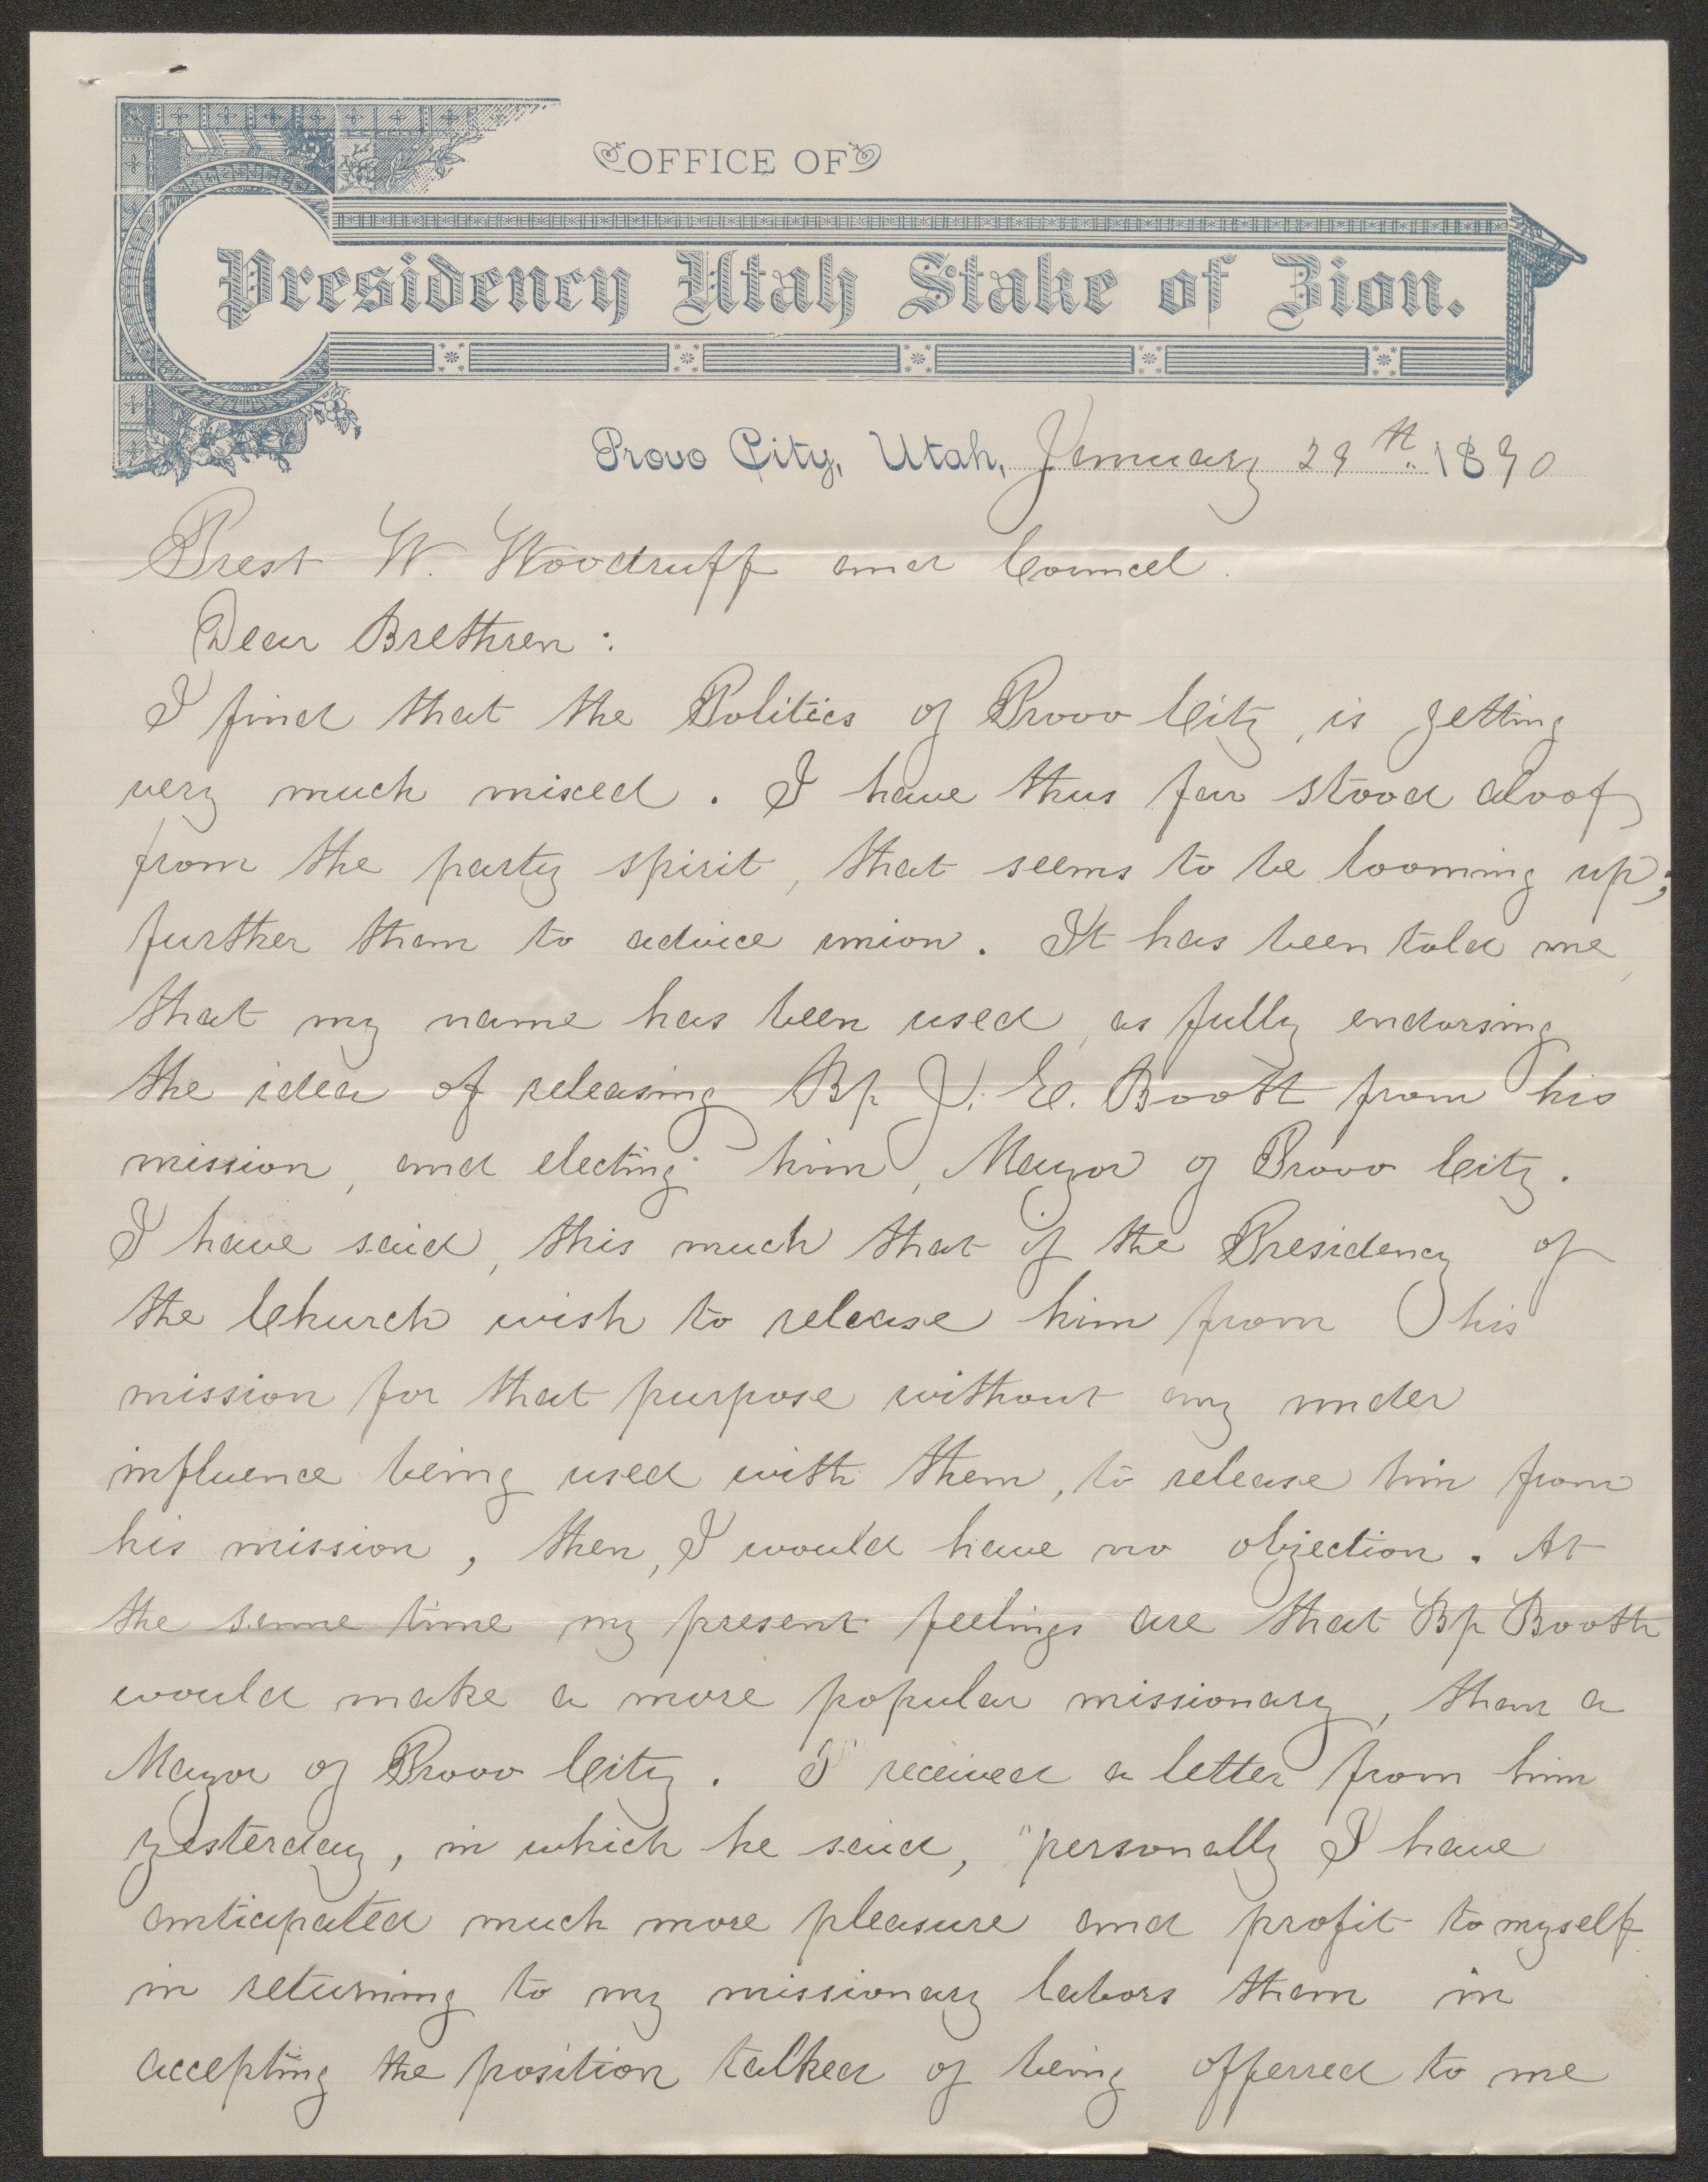 OFFICE OF
Presidency Utah Stake of Zion.
Provo City, Utah, January 29th. 1890
Prest W. Woodruff and Councel.
Dear Brethren:
I find that the Politics of Provo City, is getting
very much mixed. I have thus far stood aloof
from the party spirit, that seems to be looming up;
further than to advice union. It has been told me,
that my name has been used, as fully endorsing
the idea of releasing Bp J. E. Booth from his
mission, and electing him, Mayor of Provo City.
I have said, this much that if the Presidency of
the Church wish to release him from his
mission for that purpose without any under
influence being used with them, to release him from
his mission, then, I would have no objection. At
the same time my present feelings are that Bp Booth
would make a more popular missionary, than a
Mayor of Provo City. I received a letter from him
yesterday, in which he said, "personally I have
anticapated much more pleasure and profit to myself
in returning to my missionary labors than in
accepting the position talked of being offerred to me